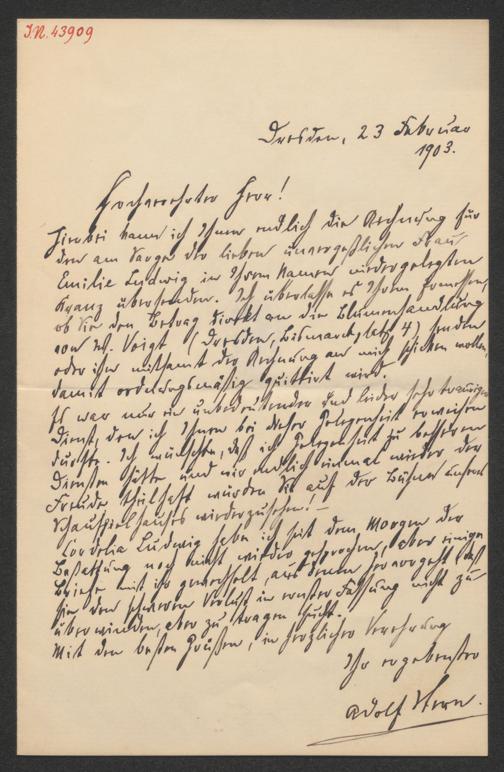 J.N. 43909
Dresden, 23 Februar
1903.
Hochverehrter Herr!
Hierbei kann ich Ihnen endlich die Rechnung für
den am Sarge der lieben unvergeßlichen Frau
Emilie Ludwig in Ihrem Namen niedergelegten
Kranz übersenden. Ich überlasse es Ihrem Ermessen,
ob Sie den Betrag direkt an die Blumenhandlung
von W. Voigt (Dresden, Bismarckplatz 4) senden
oder ihn mitsamt der Rechnung an mich schicken wollen,
damit ordnungsmäßig quittirt wird.
Es war nur ein unbedeutender und leider sehr trauriger
Dienst, den ich Ihnen bei dieser Gelegenheit erweisen
durfte. Ich wünschte, daß ich Gelegenheit zu besseren
Diensten hätte und wir endlich einmal wieder der
Freude theilhaft würden Sie auf der Bühne unseres
Schauspielhauses wiederzusehen! —
Cordelia Ludwig habe ich seit dem Morgen der
Bestattung noch nicht wieder gesprochen, aber einige
Briefe mit ihr gewechselt, aus denen hervorgeht, daß
sie den schweren Verlust in ernster Fassung nicht zu
überwinden, aber zu tragen sucht.
Mit den besten Grüßen, in herzlicher Verehrung
Ihr ergebenster
Adolf Stern.